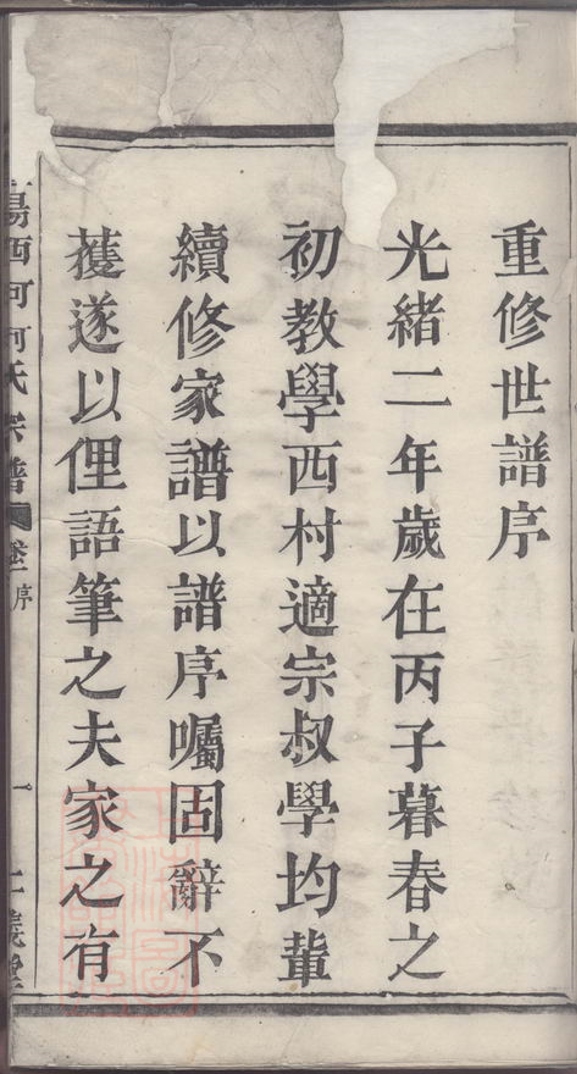 重修世譜序
光緒二年歲在丙子暮春之
初教學西村適宗叔學均輩
續修家譜以譜序囑固辭不
蒦遂以俚語筆之夫家之有
西河何氏宗譜
序
一
義堂